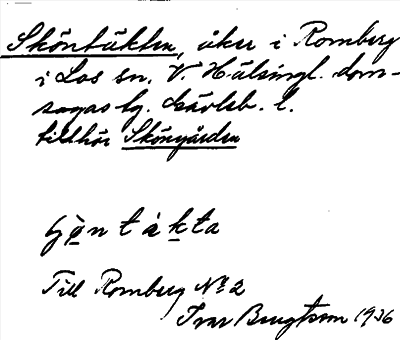 Sköntäkten, åker i Romberg
i Los sn. V. Hälsingl. dom-
sagas tg. Gävleb. l.
tillhör Sköngården
Till Romberg No 2
Ivar Bengtsson 1936